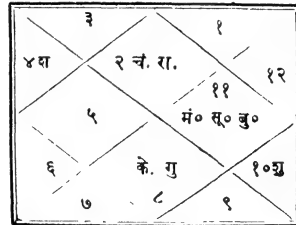 ३ १
४ श २ चं. रा. १२
११
५ मं० सू० बु०
६ के. गु १०शु
७ ८ ९